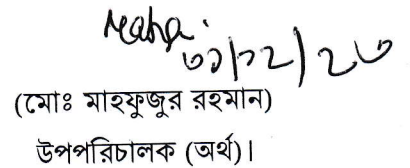 ৩১/১২/২৩
(মোঃ মাহফুজুর রহমান)
উপপরিচালক (অর্থ)।